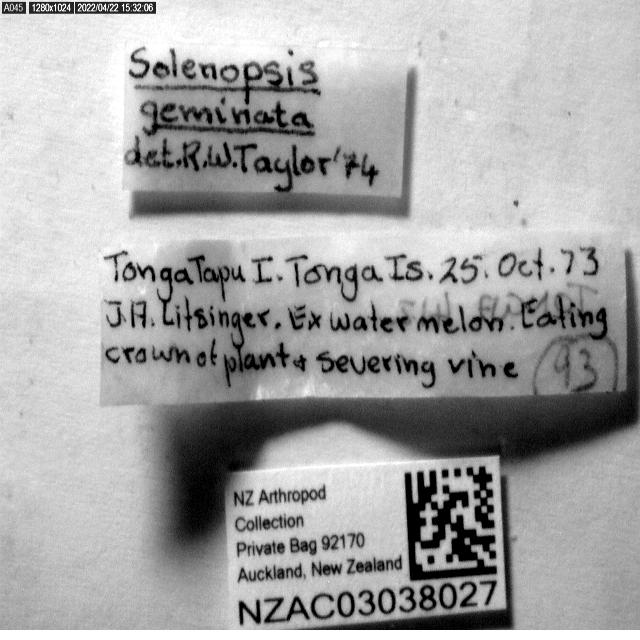 A045 1280x1024 2022/04/22 15:32:06
Solenopsis
geminata
det.R.W.Taylor'74
TongaTapu I. Tonga Is. 25. Oct. 73
J.A. Litsinger. Ex watermelon. Eating
crown of plant & severing vine 93
NZ Arthropod
Collection
Private Bag 92170
Auckland, New Zealand
NZAC03038027